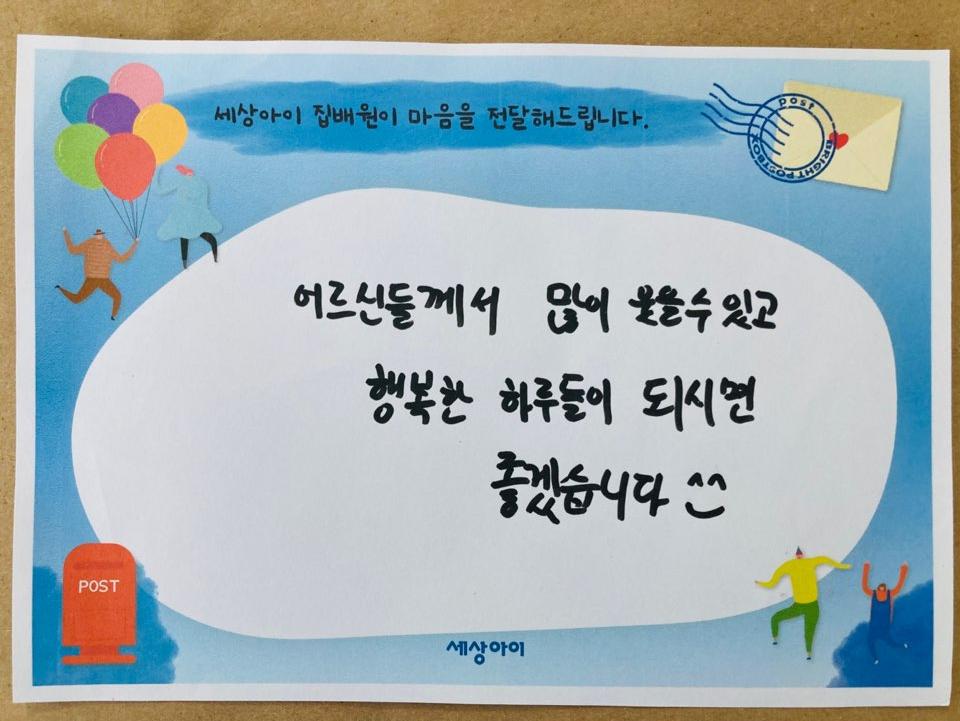 세상아이 집배원이 마음을 전달해드립니다.
post
BRIGHT POSTBOX
어르신들께서 많이 웃을수 있고
행복한 하루들이 되시면
좋겠습니다 ^^
POST
세상아이